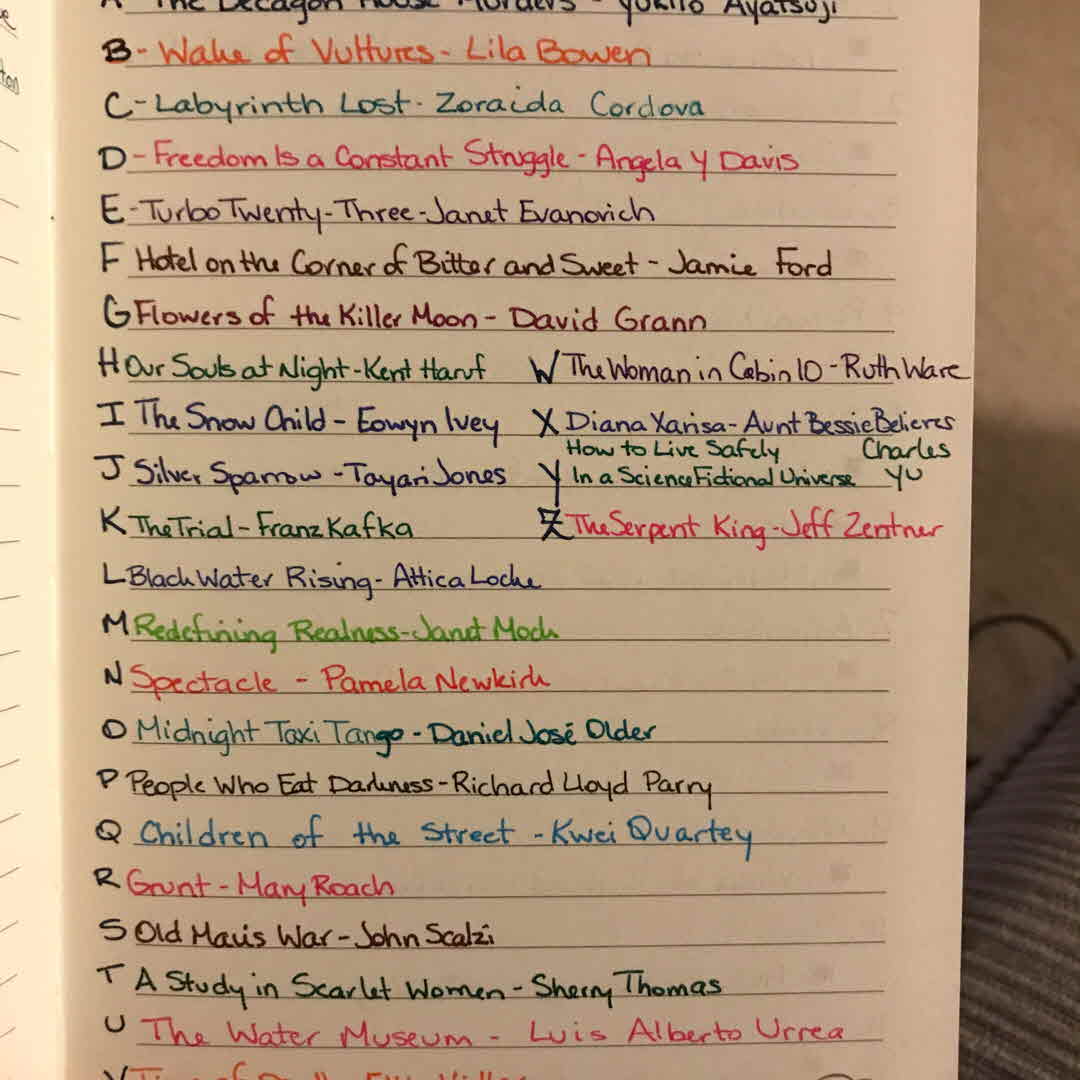 A The Decagon House Murders - Yukito Ayatsuji
B - Wake of Vultures - Lila Bowen
C - Labyrinth Lost - Zoraida Cordova
D - Freedom Is a Constant Struggle - Angela Y Davis
E - Turbo Twenty-Three - Janet Evanovich
F Hotel on the Corner of Bitter and Sweet - Jamie Ford
G Flowers of the Killer Moon - David Grann
H Our Souls at Night - Kent Haruf
I The Snow Child - Eowyn Ivey
J Silver Sparrow - Tayari Jones
K The Trial - Franz Kafka
L Black Water Rising - Attica Locke
M Redefining Realness - Janet Mock
N Spectacle - Pamela Newkirk
O Midnight Taxi Tango - Daniel José Older
P People Who Eat Darkness - Richard Lloyd Parry
Q Children of the Street - Kwei Quartey
R Grunt - Mary Roach
S Old Man's War - John Scalzi
T A Study in Scarlet Women - Sherry Thomas
U The Water Museum - Luis Alberto Urrea
V
W The Woman in Cabin 10 - Ruth Ware
X Diana Xarissa - Aunt Bessie Believes
How to Live Safely Charles
Y In a Science Fictional Universe Yu
Z The Serpent King - Jeff Zentner